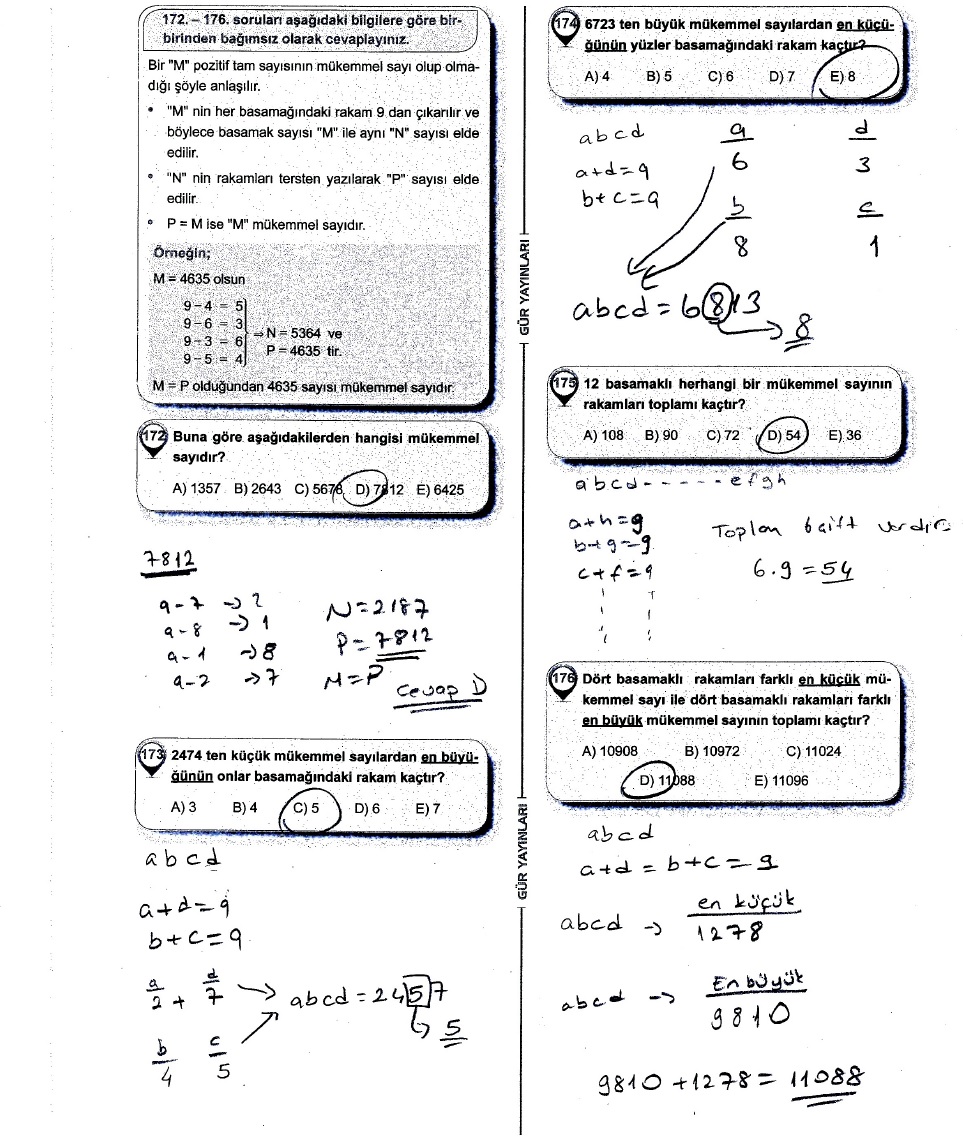 172. – 176. soruları aşağıdaki bilgilere göre bir-
birinden bağımsız olarak cevaplayınız.
Bir "M" pozitif tam sayısının mükemmel sayı olup olma-
dığı şöyle anlaşılır.
• "M" nin her basamağındaki rakam 9 dan çıkarılır ve
böylece basamak sayısı "M" ile aynı "N" sayısı elde
edilir.
• "N" nin rakamları tersten yazılarak "P" sayısı elde
edilir.
• P = M ise "M" mükemmel sayıdır.
Örneğin;
M = 4635 olsun
9 – 4 = 5
9 – 6 = 3
9 – 3 = 6
9 – 5 = 4
⇒ N = 5364 ve
P = 4635 tir.
M = P olduğundan 4635 sayısı mükemmel sayıdır.
172 Buna göre aşağıdakilerden hangisi mükemmel
sayıdır?
A) 1357 B) 2643 C) 5678 D) 7812 E) 6425
7812
9-7 → 2
9-8 → 1
9-1 → 8
9-2 → 7
N=2187
P=7812
M=P
Cevap D
173 2474 ten küçük mükemmel sayılardan en büyü-
ğünün onlar basamağındaki rakam kaçtır?
A) 3 B) 4 C) 5 D) 6 E) 7
abcd
a+d=9
b+c=9
a d
2 + 7
abcd = 2457
5
b c
4 5
GÜR YAYINLARI
GÜR YAYINLARI
174 6723 ten büyük mükemmel sayılardan en küçü-
ğünün yüzler basamağındaki rakam kaçtır?
A) 4 B) 5 C) 6 D) 7 E) 8
abcd
a+d=9
b+c=9
a d
6 3
b c
8 1
abcd = 6813
8
175 12 basamaklı herhangi bir mükemmel sayının
rakamları toplamı kaçtır?
A) 108 B) 90 C) 72 D) 54 E) 36
abcd------efgh
a+h=9
b+g=9
c+f=9
Toplam 6 çift vardır
6.9=54
176 Dört basamaklı rakamları farklı en küçük mü-
kemmel sayı ile dört basamaklı rakamları farklı
en büyük mükemmel sayının toplamı kaçtır?
A) 10908 B) 10972 C) 11024
D) 11088 E) 11096
abcd
a+d = b+c = 9
abcd → en küçük
1278
abcd → En büyük
9810
9810 + 1278 = 11088